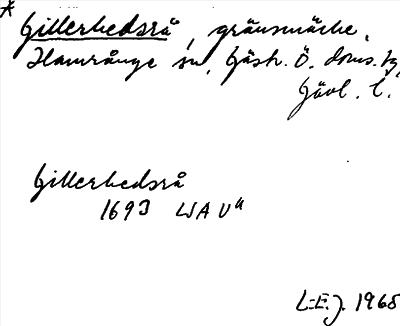 * Gillerhedsrå, gränsmärke,
Hamrånge sn, Gästr. Ö. doms. tg,
Gävl. l.
Gillerhedsrå
1693 LSA V4
L-E.J. 1965